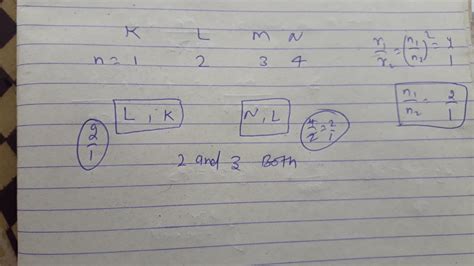 K L M N
n = 1 2 3 4
r₁/r₂ = (n₁/n₂)² = 4/1
n₁/n₂ = 2/1
L , K
N , L
2/1
4/2 = 2/1
2 and 3 Both